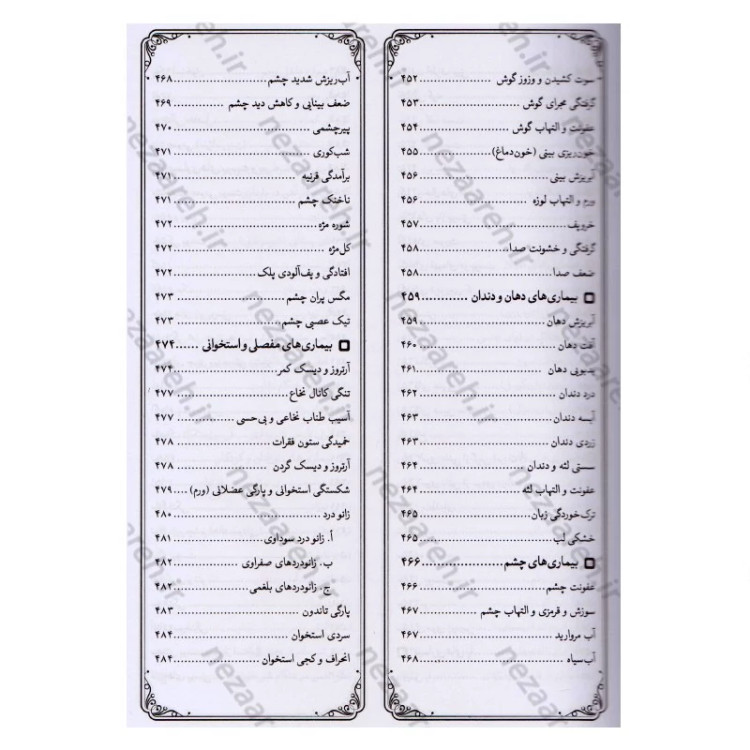 سوت کشیدن و وزوز گوش ........ ۴۵۲
گرفتگی مجرای گوش ........ ۴۵۳
عفونت و التهاب گوش ........ ۴۵۴
خون‌ریزی بینی (خون‌دماغ) ........ ۴۵۵
آبریزش بینی ........ ۴۵۶
ورم و التهاب لوزه ........ ۴۵۶
خروپف ........ ۴۵۷
گرفتگی و خشونت صدا ........ ۴۵۸
ضعف صدا ........ ۴۵۸
بیماری‌های دهان و دندان ........ ۴۵۹
آبریزش دهان ........ ۴۵۹
آفت دهان ........ ۴۶۰
بدبویی دهان ........ ۴۶۱
درد دندان ........ ۴۶۲
آبسه دندان ........ ۴۶۳
زردی دندان ........ ۴۶۳
سستی لثه و دندان ........ ۴۶۴
عفونت و التهاب لثه ........ ۴۶۴
ترک‌خوردگی زبان ........ ۴۶۵
خشکی لب ........ ۴۶۵
بیماری‌های چشم ........ ۴۶۶
عفونت چشم ........ ۴۶۶
سوزش و قرمزی و التهاب چشم ........ ۴۶۷
آب مروارید ........ ۴۶۷
آب‌سیاه ........ ۴۶۸
آب‌ریزش شدید چشم ........ ۴۶۸
ضعف بینایی و کاهش دید چشم ........ ۴۶۹
پیرچشمی ........ ۴۷۰
شب‌کوری ........ ۴۷۱
برآمدگی قرنیه ........ ۴۷۱
ناخنک چشم ........ ۴۷۱
شوره مژه ........ ۴۷۲
گل‌مژه ........ ۴۷۲
افتادگی و پف‌آلودی پلک ........ ۴۷۲
مگس پران چشم ........ ۴۷۳
تیک عصبی چشم ........ ۴۷۳
بیماری‌های مفصلی و استخوانی ........ ۴۷۴
آرتروز و دیسک کمر ........ ۴۷۴
تنگی کانال نخاع ........ ۴۷۷
آسیب طناب نخاعی و بی‌حسی ........ ۴۷۷
خمیدگی ستون فقرات ........ ۴۷۸
آرتروز و دیسک گردن ........ ۴۷۸
شکستگی استخوانی و پارگی عضلانی (ورم) ........ ۴۷۹
زانو درد ........ ۴۸۰
أ. زانو درد سوداوی ........ ۴۸۱
ب. زانودردهای صفراوی ........ ۴۸۲
ج. زانودردهای بلغمی ........ ۴۸۲
پارگی تاندون ........ ۴۸۳
سردی استخوان ........ ۴۸۴
انحراف و کجی استخوان ........ ۴۸۴
nezaareh.ir